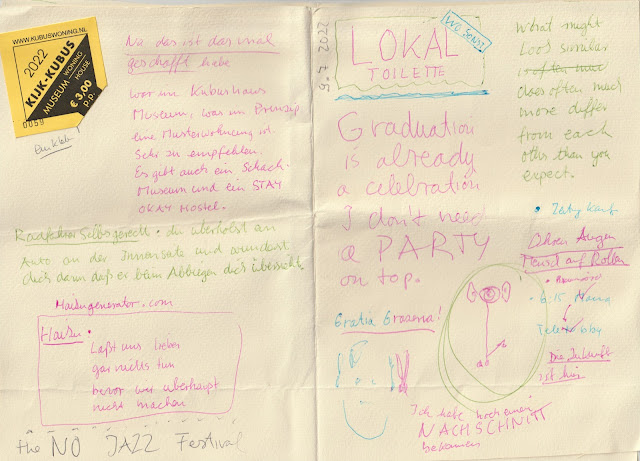 WWW.KUBUSWONING.NL
2022
KIJK-KUBUS
MUSEUM WONING
HOUSE
€ 3,00
p.p.
0059
Na das ist das mal
geschafft habe
war im Kubushaus
Museum, was im Prinzip
eine Musterwohnung ist.
Sehr zu empfehlen.
Es gibt auch ein Schach-
Museum und ein STAY
OKAY Hostel.
Radfahrer Selbsgerecht: du überholst an
Auto an der Innenseite und wunderst
dich dann daß er beim Abbiegen dich übersieht
Haikugenerator.com
Haiku:
Laßt uns lieber
gar nichts tun
bevor wir überhaupt
nicht machen
the NO JAZZ Festival
9.7.2022
LOKAL
TOILETTE
WO SONST
Graduation
is already
a celebration
I don't need
a PARTY
on top.
Gratia Graaena!
Ich habe noch einen
NACHSCHNITT
bekommen
What might
look similar
is often mud
does often much
more differ
from each
other than you
expect.
Ohren Augen
Mensch auf Rollen
6:15 Mama
Teletobby
Die Zukunft
ist hier